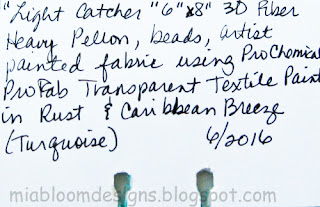 "Light Catcher "6"x8" 3D Fiber
Heavy Pellon, beads, artist
painted fabric using ProChemical
ProFab Transparent Textile Paint
in Rust & Caribbean Breeze
(Turquoise) 6/2016
miabloomdesigns.blogspot.com